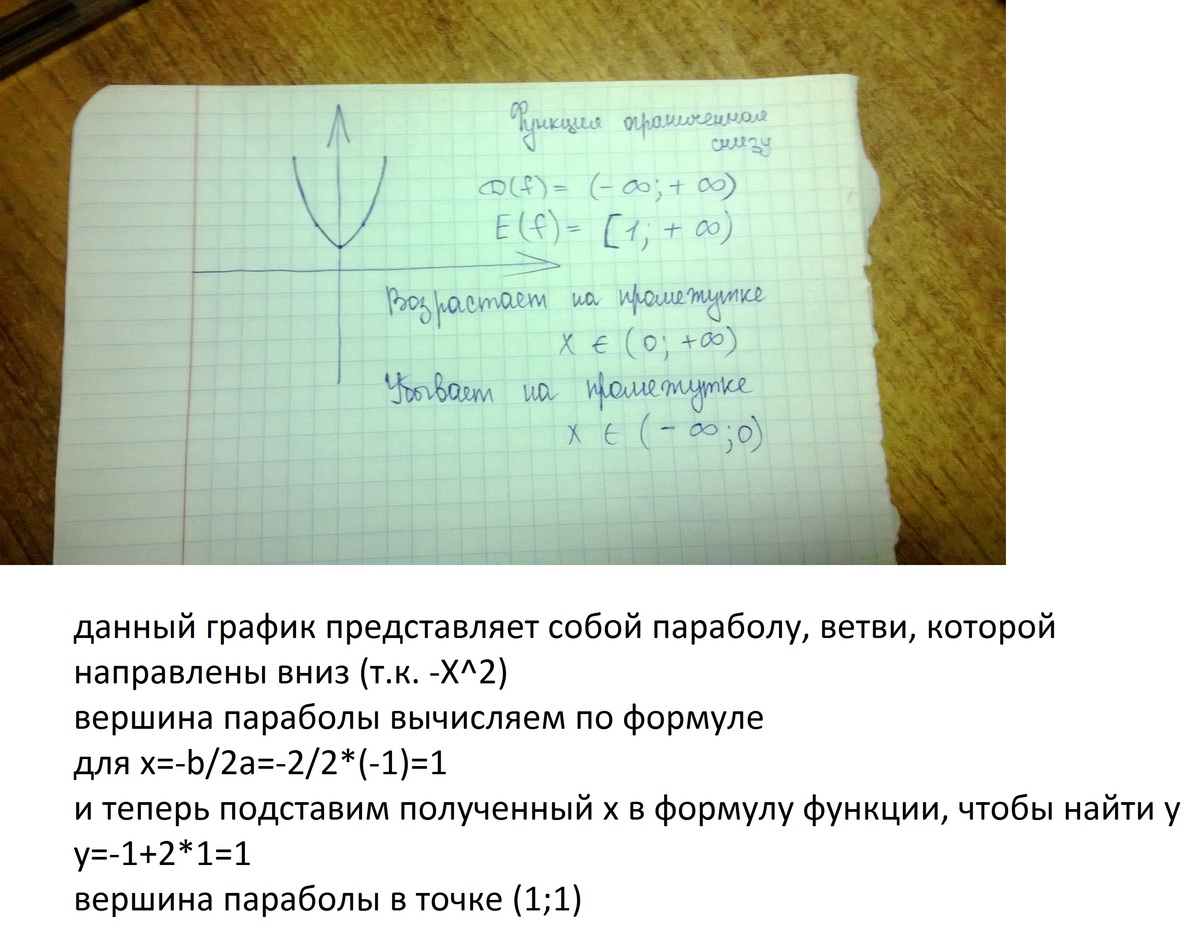 Функция ограниченная
снизу
D(f) = (-∞; +∞)
E(f) = [1; +∞)
Возрастает на промежутке
x ∈ (0; +∞)
Убывает на промежутке
x ∈ (-∞; 0)
данный график представляет собой параболу, ветви, которой
направлены вниз (т.к. -X^2)
вершина параболы вычисляем по формуле
для x=-b/2a=-2/2*(-1)=1
и теперь подставим полученный x в формулу функции, чтобы найти y
y=-1+2*1=1
вершина параболы в точке (1;1)